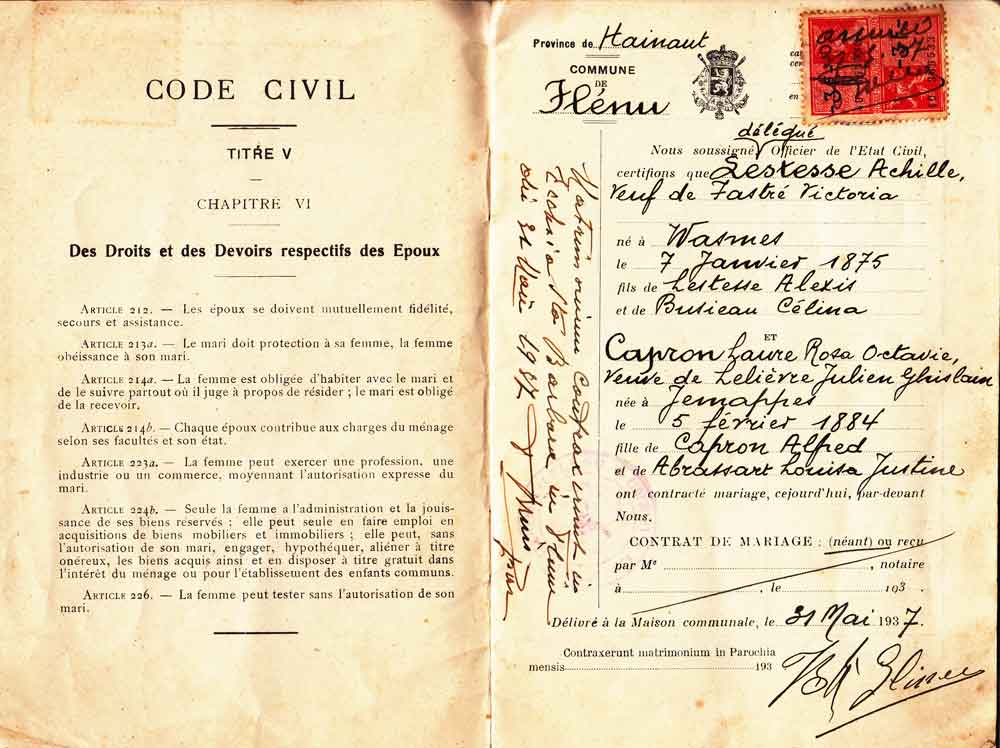 CODE CIVIL
TITRE V
CHAPITRE VI
Des Droits et des Devoirs respectifs des Epoux
ARTICLE 212. — Les époux se doivent mutuellement fidélité,
secours et assistance.
ARTICLE 213a. — Le mari doit protection à sa femme, la femme
obéissance à son mari.
ARTICLE 214a. — La femme est obligée d'habiter avec le mari et
de le suivre partout où il juge à propos de résider ; le mari est obligé
de la recevoir.
ARTICLE 214b. — Chaque époux contribue aux charges du ménage
selon ses facultés et son état.
ARTICLE 223a. — La femme peut exercer une profession, une
industrie ou un commerce, moyennant l'autorisation expresse du
mari.
ARTICLE 224b. — Seule la femme a l'administration et la jouis-
sance de ses biens réservés ; elle peut seule en faire emploi en
acquisitions de biens mobiliers et immobiliers ; elle peut, sans
l'autorisation de son mari, engager, hypothéquer, aliéner à titre
onéreux, les biens acquis ainsi et en disposer à titre gratuit dans
l'intérêt du ménage ou pour l'établissement des enfants communs.
ARTICLE 226. — La femme peut tester sans l'autorisation de son
mari.
Matrimonium contraxerunt in
Ecclesia Sta Barbara in Flénu
die 31 Mai 1937
Province de Hainaut
COMMUNE
DE
Flénu
délégué
Nous soussigné Officier de l'Etat Civil,
certifions que Lestesse Achille,
Veuf de Fastré Victoria
né à Wasmes
le 7 Janvier 1875
fils de Lestesse Alexis
et de Busieau Célina
ET
Capron Laure Rosa Octavie,
Veuve de Lelièvre Julien Ghislain
née à Jemappes
le 5 février 1884
fille de Capron Alfred
et de Abrassart Louisa Justine
ont contracté mariage, cejourd'hui, par-devant
Nous.
CONTRAT DE MARIAGE : (néant) ou reçu
par Me , notaire
à , le 193 .
Délivré à la Maison communale, le 31 Mai 1937.
Contraxerunt matrimonium in Parochia
mensis 193